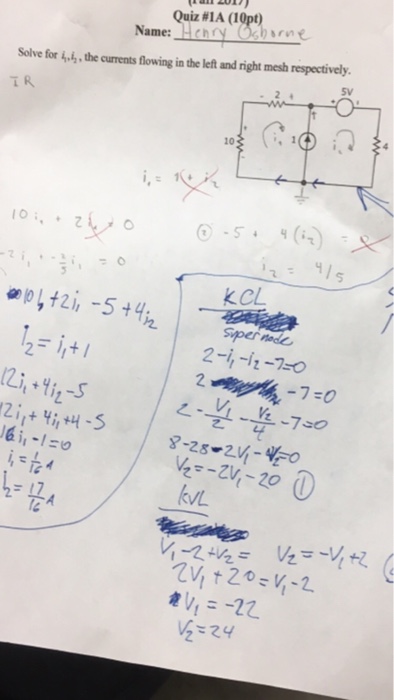 Quiz #1A (10pt)
Name: Henry Osborne
Solve for i₁,i₂, the currents flowing in the left and right mesh respectively.
IR
2
5V
10
i₁
1
i₂
4
i₁ = 1 + i₂
10 i₁ + 2 i₁ = 0
② -5 + 4(i₂) =
i₂ = 4/5
10i₁+2i₁-5+4i₂
i₂=i₁+1
12i₁+4i₂-5
12i₁+4i₁+4-5
16i₁-1=0
i₁=1/16 A
i₂=17/16 A
KCL
supernode
2-i₁-i₂-7=0
2 -7=0
2-V₁/2-V₂/4-7=0
8-28-2V₁-V₂=0
V₂=-2V₁-20 ①
KVL
V₁-2+V₂= V₂=-V₁+2
2V₁+20=V₁-2
V₁=-22
V₂=24